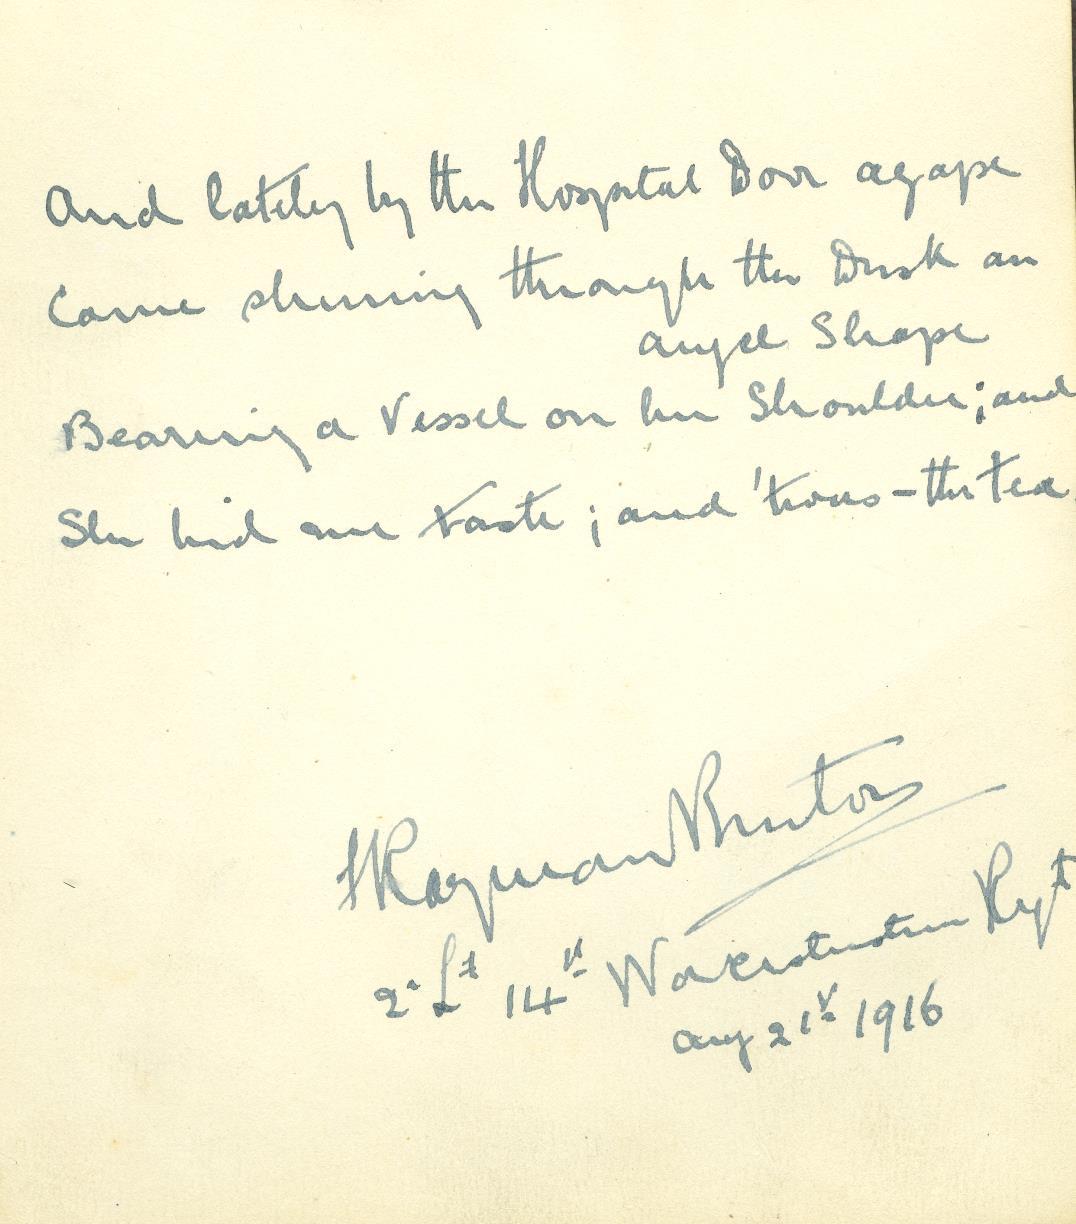 And lately by the Hospital Door agape
Came shining through the Dusk an
angel Shape
Bearing a Vessel on her Shoulder; and
She bid me taste; and 'twas – the tea.
Rayman Bruton
2. Lt 14th Worcestershire Regt
Aug 21st 1916